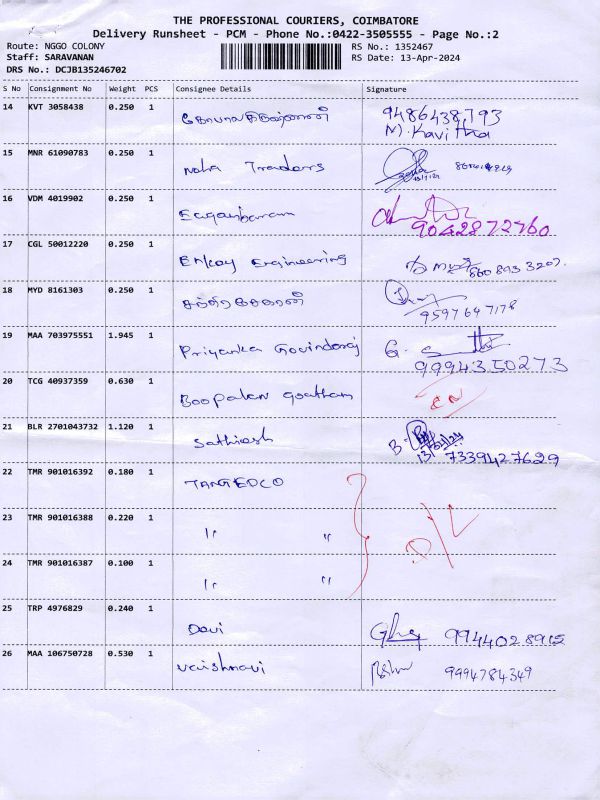 THE PROFESSIONAL COURIERS, COIMBATORE
Delivery Runsheet - PCM - Phone No.:0422-3505555 - Page No.:2
Route: NGGO COLONY
RS No.: 1352467
Staff: SARAVANAN
RS Date: 13-Apr-2024
DRS No.: DCJB135246702
S No Consignment No Weight PCS Consignee Details Signature
14 KVT 3058438 0.250 1 9486438793
M. Kavitha
15 MNR 61090783 0.250 1 Noha Traders
16 VDM 4019902 0.250 1 9042872760
17 CGL 50012220 0.250 1 Emkay Engineering 860 893 3207.
18 MYD 8161303 0.250 1 சந்திரசேகரன் 9597647178
19 MAA 703975551 1.945 1 Priyanka Govindaraj G.
9994350273
20 TCG 40937359 0.630 1 Boopalan Goatham
21 BLR 2701043732 1.120 1 Sathiesh B.
7339427629
22 TMR 901016392 0.180 1 TANGEDCO
23 TMR 901016388 0.220 1 " "
24 TMR 901016387 0.100 1 " "
25 TRP 4976829 0.240 1 Devi 9944028915
26 MAA 106750728 0.530 1 Vaishnavi 9994784349